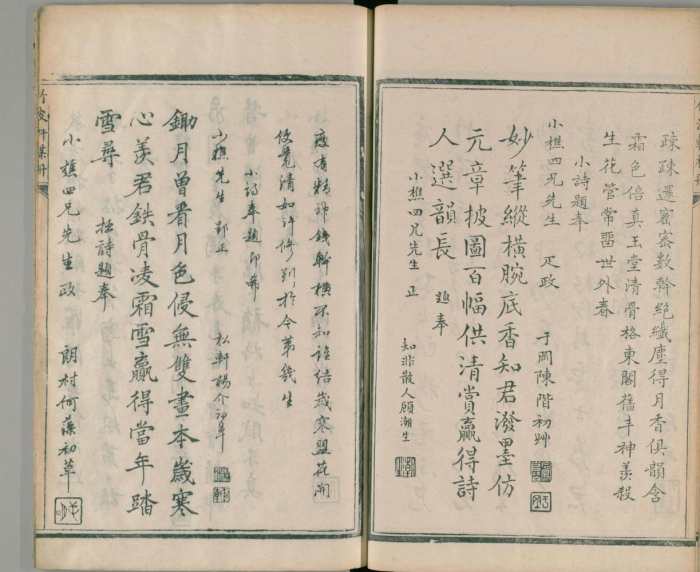 疎疎還密密數幹絕纖塵得月香俱韻含
霜色倍真玉堂清骨格東閣舊丰神羨殺
生花管常留世外春
小詩題奉
小樵四兄先生 正政
于岡陳階初艸
妙筆縱橫腕底香知君潑墨仿
元章披圖百幅供清賞贏得詩
人選韻長 題奉
小樵四兄先生 正
知非散人顧瀚生
有精神鐵幹橫不知誰結歲寒盟花開
覺清如許修到於今第幾生
小詩奉題即希
小樵先生 郢正
松軒楊介初草
鋤月曾看月色侵無雙畫本歲寒
心羨君鉄骨凌霜雪贏得當年踏
雪尋 拙詩題奉
小樵四兄先生政
朗村何藻初草